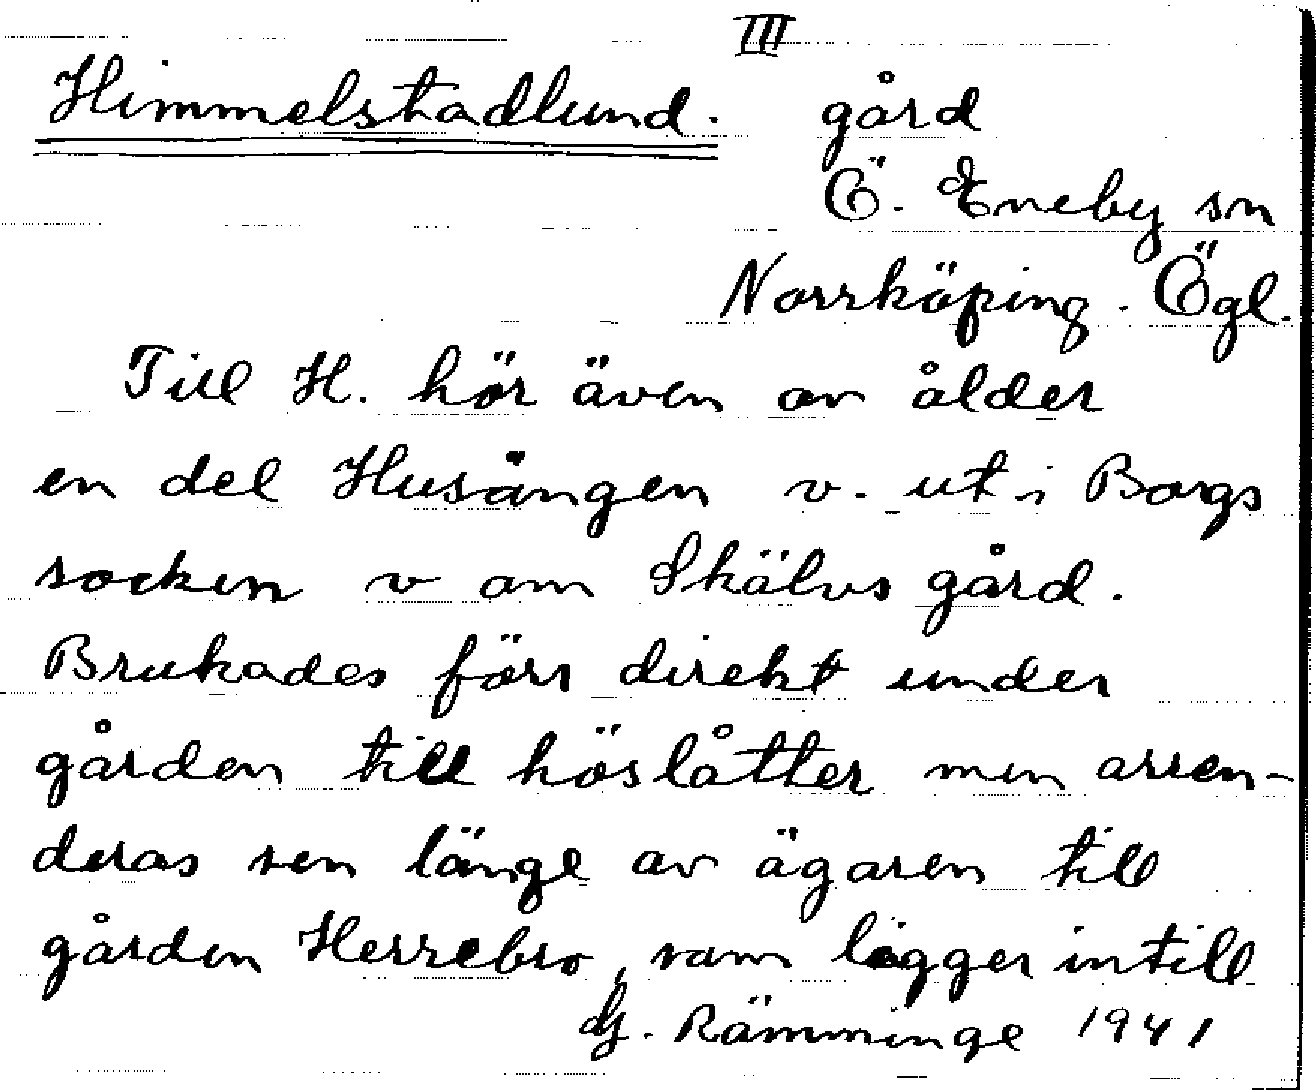 III
Himmelstadlund. gård
Ö. Eneby sn
Norrköping. Ögl.
Till H. hör även av ålder
en del Husängen v. ut i Borgs
socken v om Skälvs gård.
Brukades förr direkt under
gården till höslåtter men arren-
deras sen länge av ägaren till
gården Herrebro, som ligger intill
G. Rämminge 1941